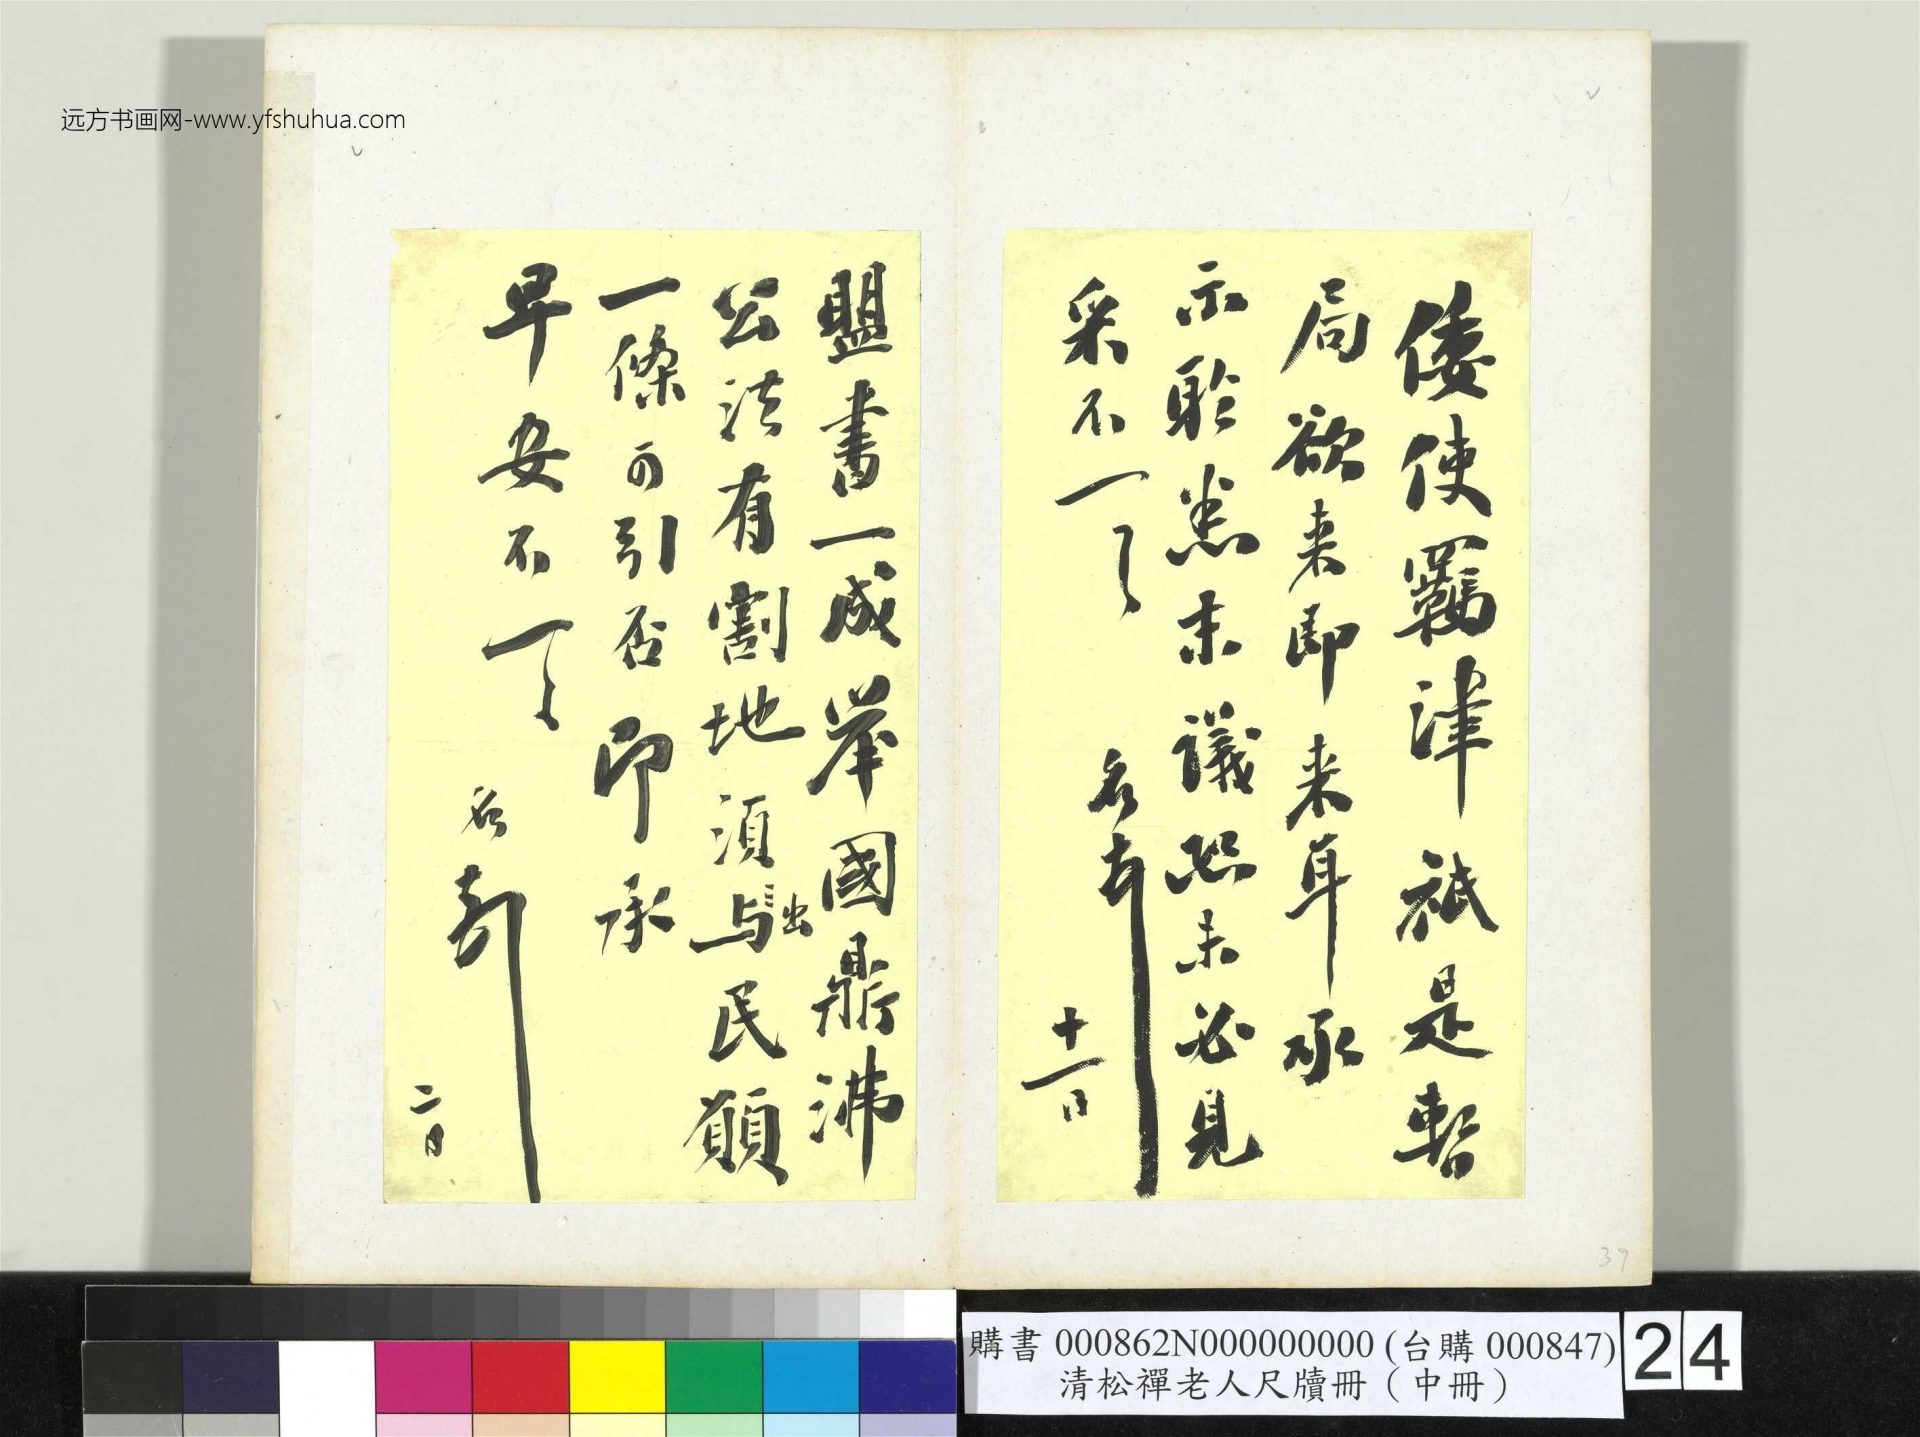 远方书画网-www.yfshuhua.com
倭使羈津祇是暫
局欲来即来耳承
示聆悉末議恐未必見
采不一一
名
十一日
盟書一成举國鼎沸
公法有割地須与民願
出
一條可引否即承
早安不一一
名
二日
39
購書 000862N000000000 (台購 000847)
清松禪老人尺牘冊（中冊）
24